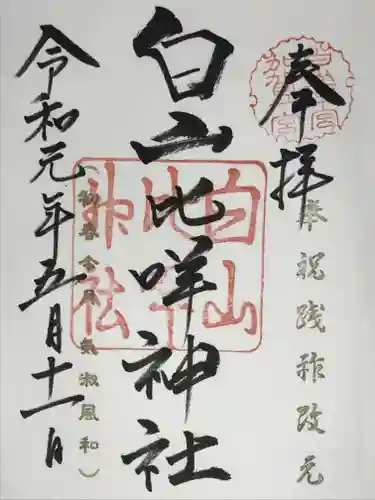 奉拝
奉祝践祚改元
白山比咩神社
白山
比咩
神社
令和元年五月十一日
（初春令月　氣淑風和）